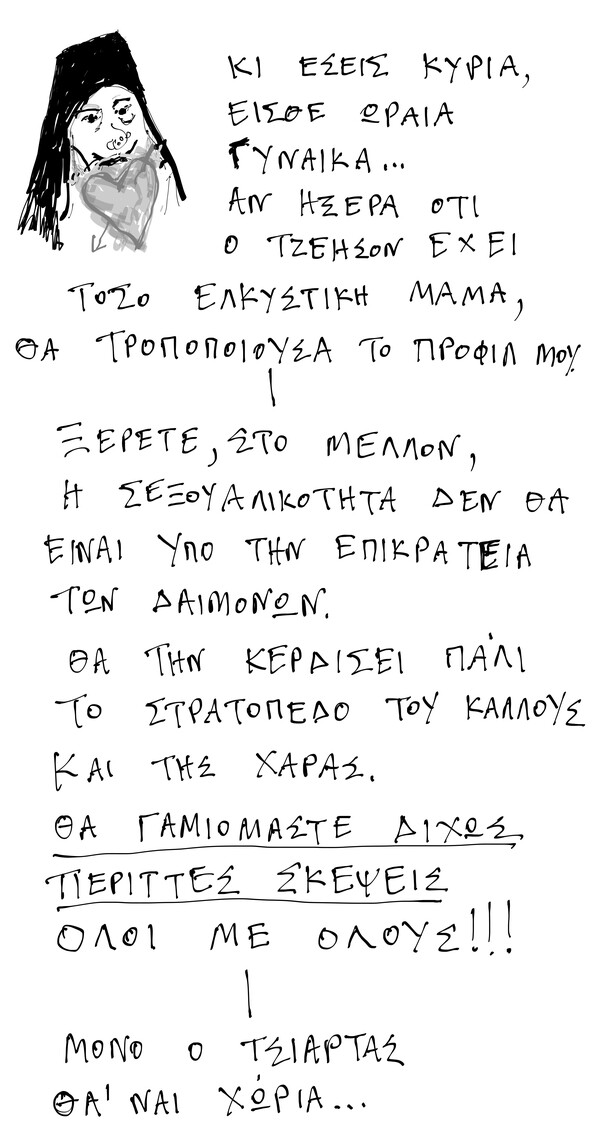 ΚΙ ΕΣΕΙΣ ΚΥΡΙΑ,
ΕΙΣΘΕ ΩΡΑΙΑ
ΓΥΝΑΙΚΑ...
ΑΝ ΗΞΕΡΑ ΟΤΙ
Ο ΤΖΕΗΣΟΝ ΕΧΕΙ
ΤΟΣΟ ΕΛΚΥΣΤΙΚΗ ΜΑΜΑ,
ΘΑ ΤΡΟΠΟΠΟΙΟΥΣΑ ΤΟ ΠΡΟΦΙΛ ΜΟΥ.
ΞΕΡΕΤΕ, ΣΤΟ ΜΕΛΛΟΝ,
Η ΣΕΞΟΥΑΛΙΚΟΤΗΤΑ ΔΕΝ ΘΑ
ΕΙΝΑΙ ΥΠΟ ΤΗΝ ΕΠΙΚΡΑΤΕΙΑ
ΤΩΝ ΔΑΙΜΟΝΩΝ.
ΘΑ ΤΗΝ ΚΕΡΔΙΣΕΙ ΠΆΛΙ
ΤΟ ΣΤΡΑΤΟΠΕΔΟ ΤΟΥ ΚΑΛΛΟΥΣ
ΚΑΙ ΤΗΣ ΧΑΡΑΣ.
ΘΑ ΓΑΜΙΟΜΑΣΤΕ ΔΙΧΩΣ
ΠΕΡΙΤΤΕΣ ΣΚΕΨΕΙΣ
ΟΛΟΙ ΜΕ ΟΛΟΥΣ!!!
ΜΟΝΟ Ο ΤΣΙΑΡΤΑΣ
ΘΑ' ΝΑΙ ΧΏΡΙΑ...